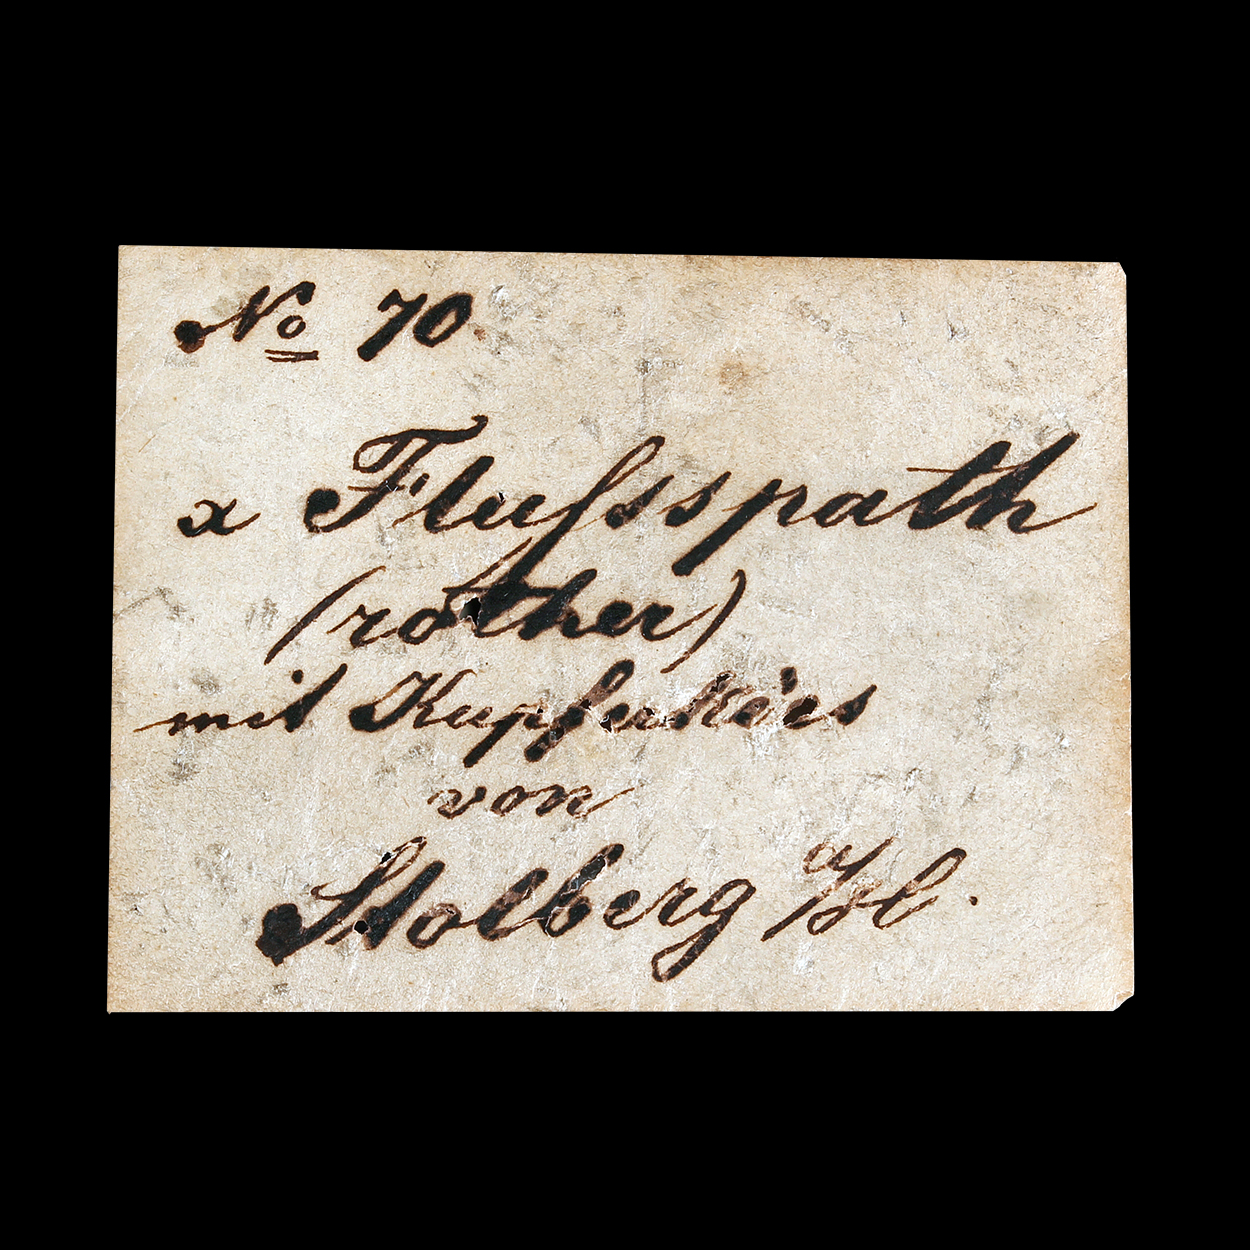 No 70.
x Flusſsspath
(rother)
mit Kupferkies
von
Stolberg a/H.